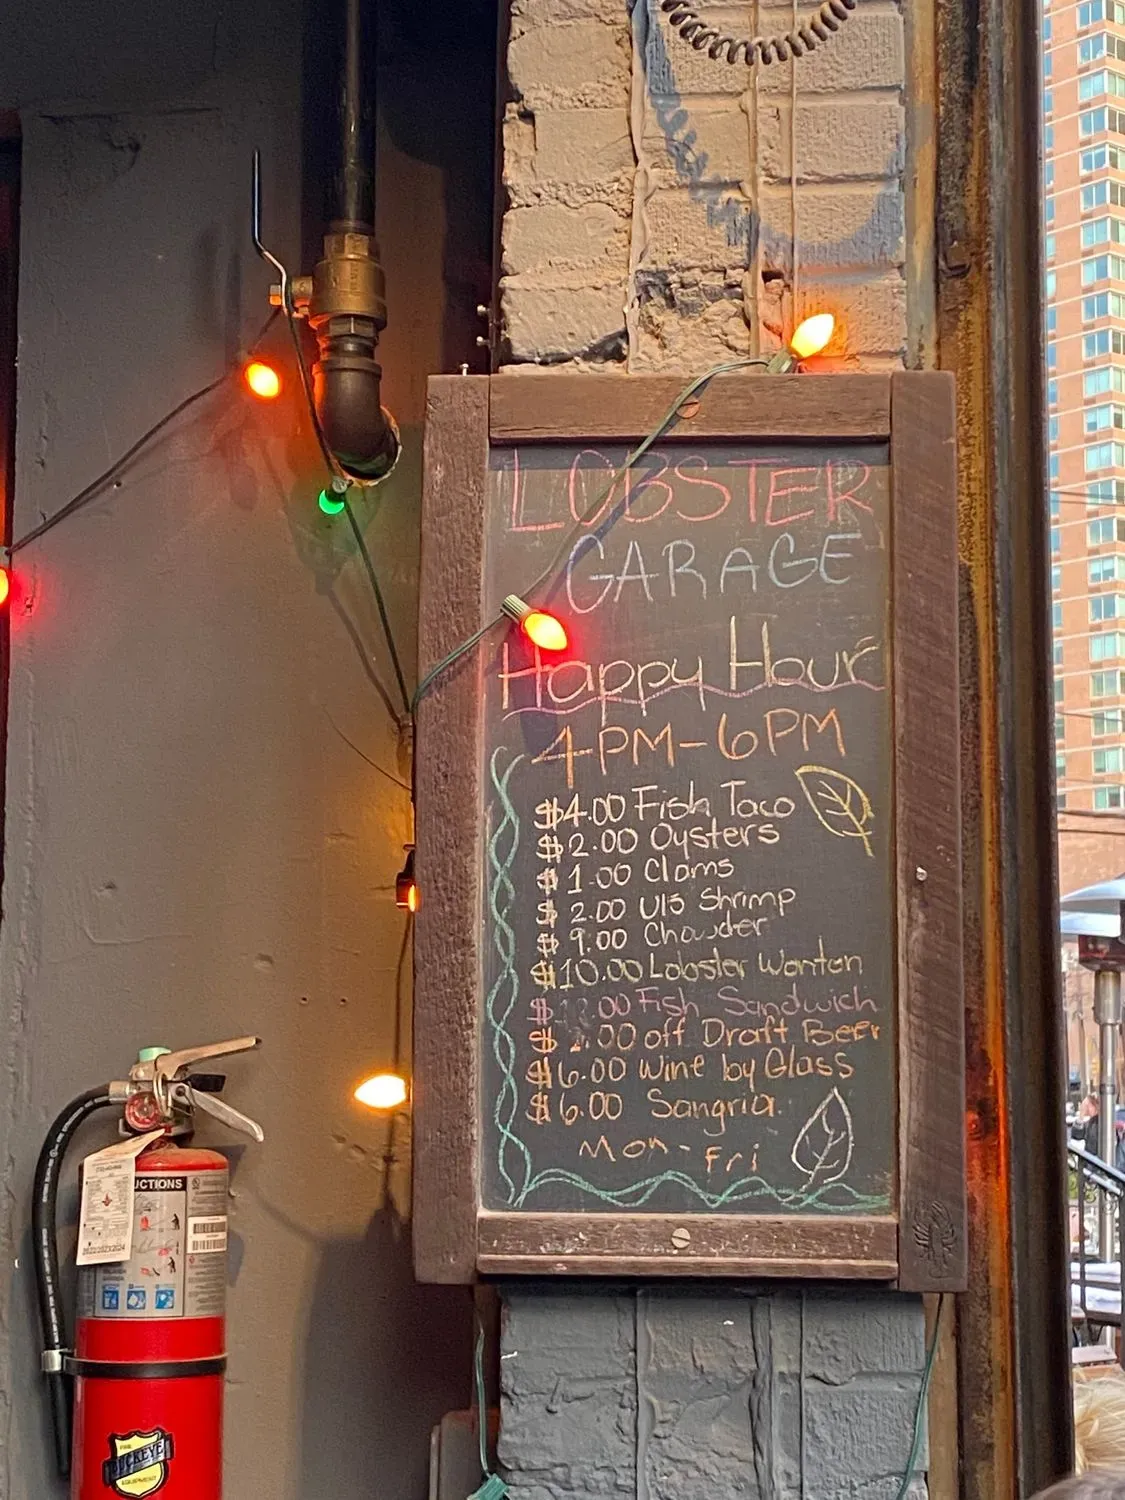 LOBSTER
GARAGE
Happy Hour
4PM-6PM
$4.00 Fish Taco
$2.00 Oysters
$1.00 Clams
$2.00 U15 Shrimp
$9.00 Chowder
$10.00 Lobster Wonton
Fish Sandwich
off Draft Beer
$6.00 Wine by Glass
$6.00 Sangria.
Mon-Fri
UCTIONS
2022/2023/2024
FIRE
BUCKEYE
EQUIPMENT